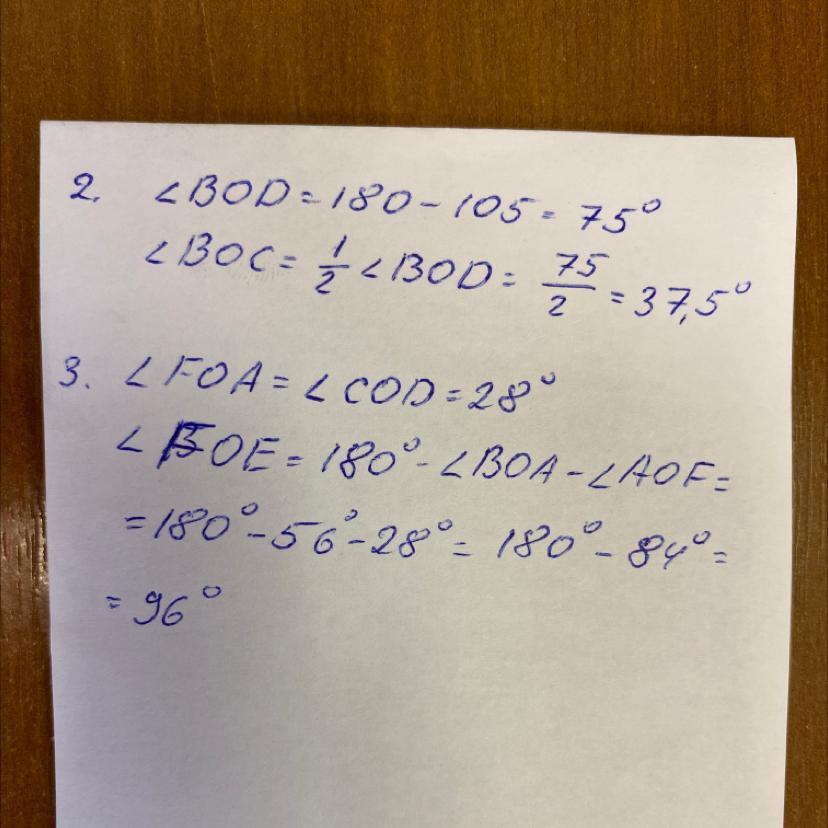 2. ∠BOD = 180 - 105 = 75°
∠BOC = 1/2 ∠BOD = 75/2 = 37,5°
3. ∠FOA = ∠COD = 28°
∠FOE = 180° - ∠BOA - ∠AOF =
= 180° - 56° - 28° = 180° - 84° =
= 96°